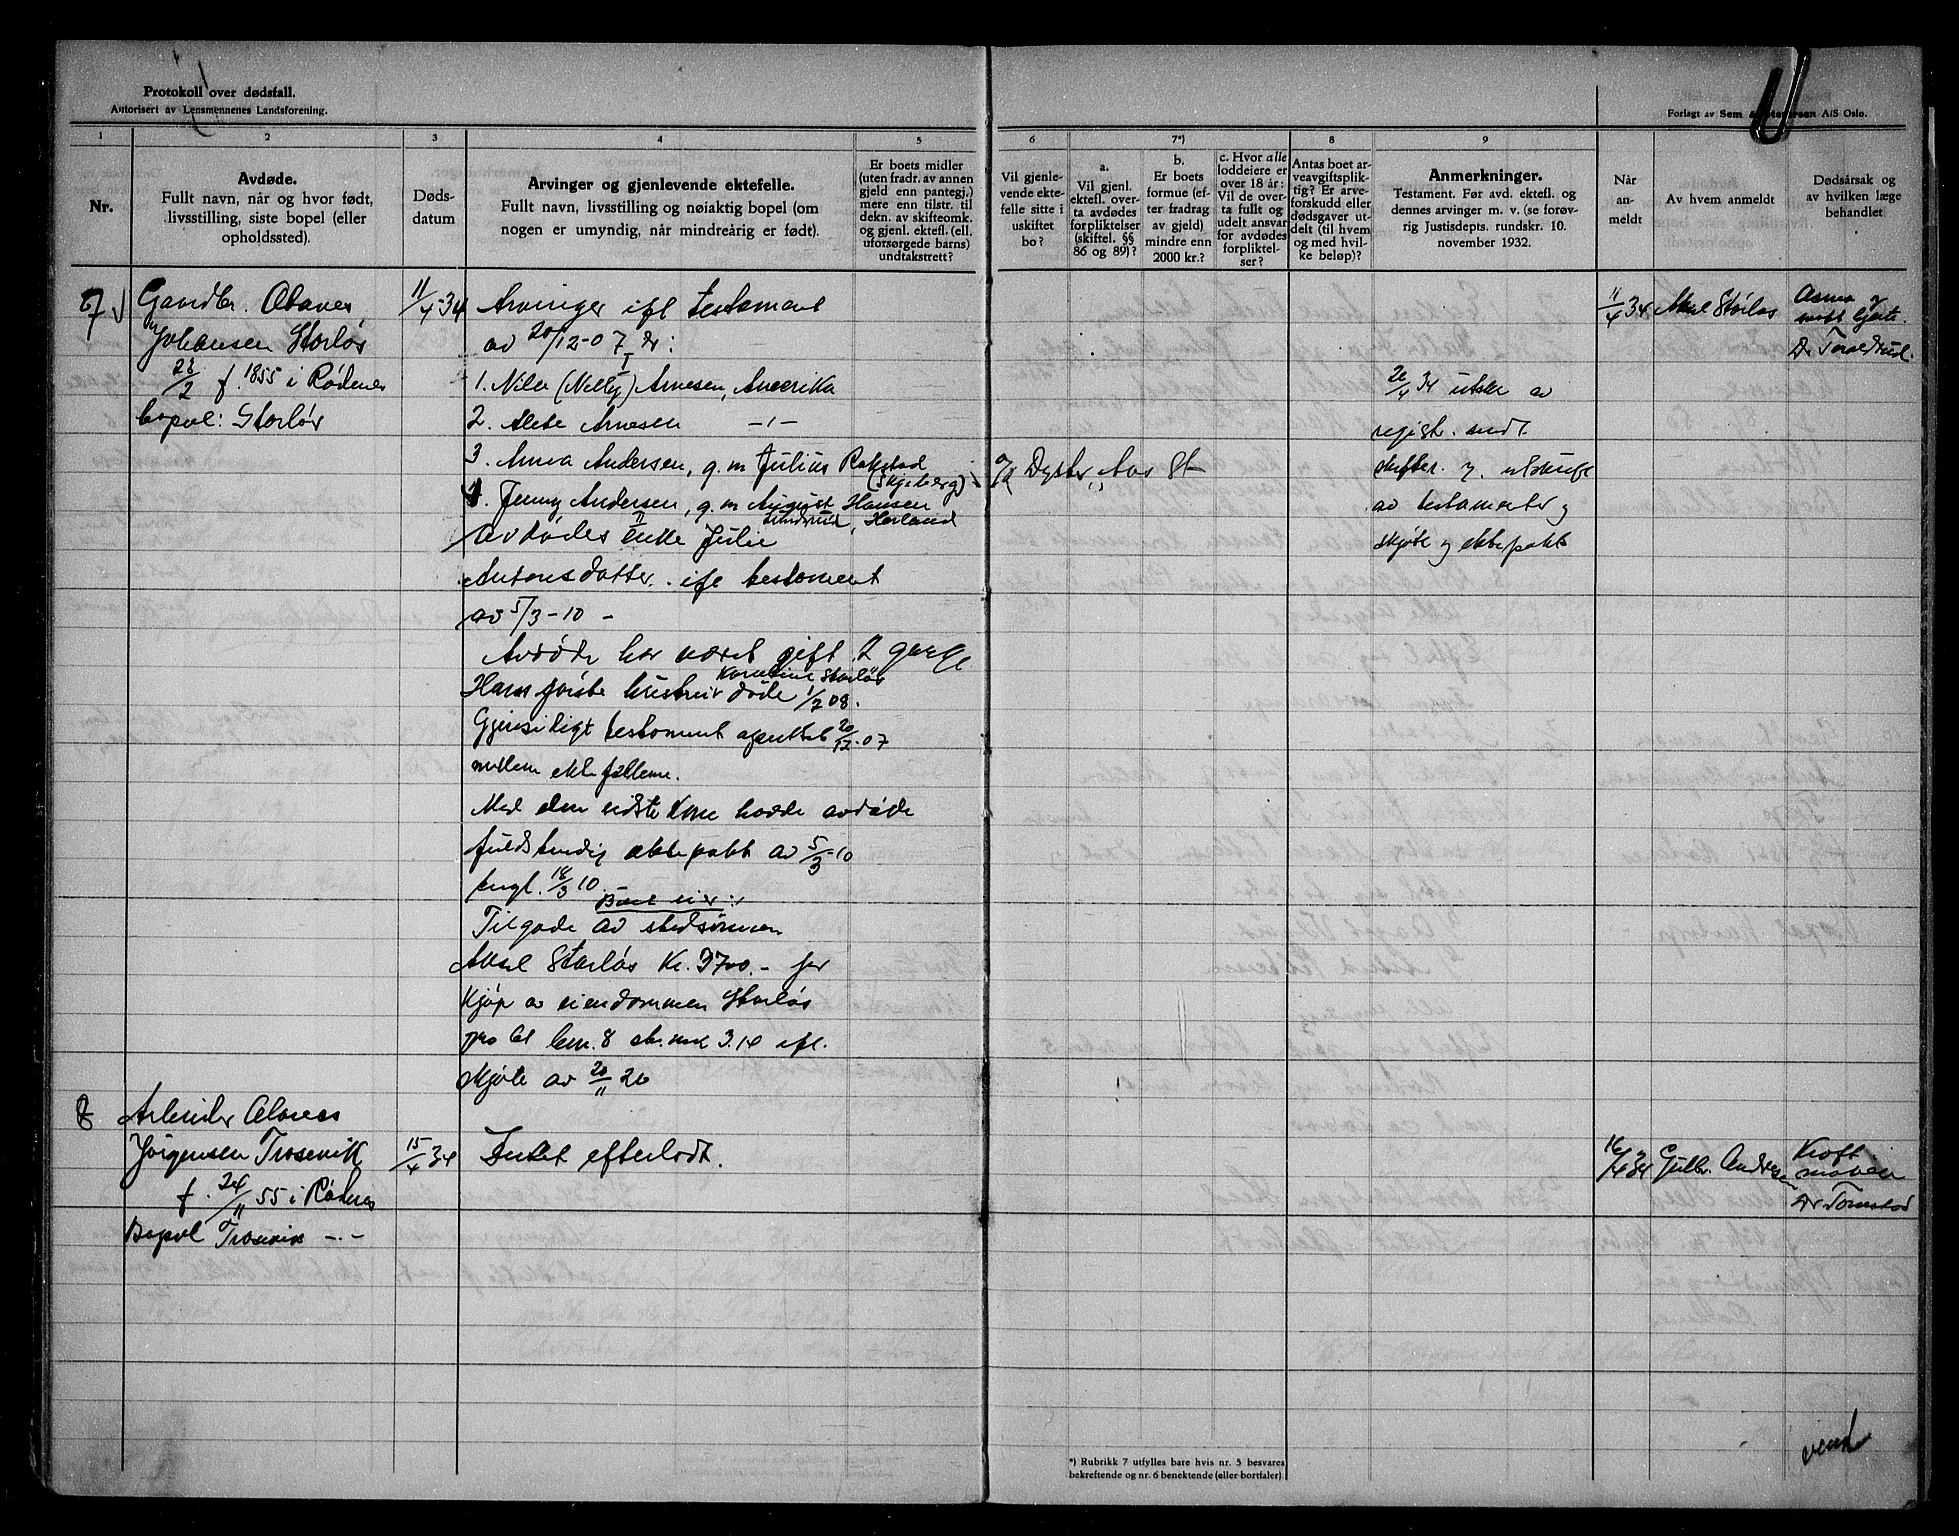 Protokoll over dødsfall.
Autorisert av Lensmennenes Landsforening.
Forlagt av Sem & Stenersen A/S Oslo.
1
2
3
4
5
6
7*)
8
9
Nr.
Avdøde.
Fullt navn, når og hvor født,
livsstilling, siste bopel (eller
opholdssted).
Døds-
datum
Arvinger og gjenlevende ektefelle.
Fullt navn, livsstilling og nøiaktig bopel (om
nogen er umyndig, når mindreårig er født).
Er boets midler
(uten fradr. av annen
gjeld enn pantegj.)
mere enn tilstr. til
dekn. av skifteomk.
og gjenl. ektef. (ell.
uforsørgede barns)
undtakstrett?
Vil gjenle-
vende ekte-
felle sitte i
uskiftet
bo?
a.
Vil gjenl.
ektef. over-
ta avdødes
forpliktelser
(skiftel. §§
86 og 89)?
b.
Er boets
formue (ef-
ter fradrag
av gjeld)
mindre enn
2000 kr.?
c. Hvor alle
loddeiere er
over 18 år:
Vil de over-
ta fullt og
udelt ansvar
for avdødes
forpliktel-
ser?
Antas boet ar-
veavgiftsplik-
tig? Er arve-
forskudd eller
dødsgaver ut-
delt (til hvem
og med hvil-
ke beløp)?
Anmerkninger.
Testament. Før avd. ektef. og
dennes arvinger m. v. (se forøv-
rig Justisdepts. rundskr. 10.
november 1932.
Når
an-
meldt
Av hvem anmeldt
Dødsårsak og
av hvilken læge
behandlet
7
Gardbr. Olaves
Johansen Storløs
f. 28/2 1855 i Rødenes
bopel: Storløs
11/4-34
Arvinger ifl testament
av 20/12-07 er:
I
1. Nila (Nelly) Arnesen, Amerika
2. Alete Arnesen -"-
3. Anna Andersen, g.m Julius Rakstad
(Skjeberg)
4. Jenny Andersen, g.m August Hansen
Lundrud, Herland
II
Avdødes enke Julie
Antonsdatter. ifl testament
av 5/3-10 -
Avdøde har været gift 2 gange
Hans første hustru Karoline Storløs døde 1/2 08.
Gjensidigt testament oprettet 20/12-07
mellem ektefellene.
Med den sidste kone hadde avdøde
fuldstendig ektepakt av 5/3-10
tingl. 18/3 10.
Boet eier:
Tilgode av stedsønnen
Aksel Storløs Kr. 3700.- for
kjøp av eiendommen Storløs
gno 61 bnr. 8 sk. mrk 3.14 ifl.
skjøte av 20/11 20
Dyster, Aas St
26/4 34 utskr av
registr. sendt
skifter. og utskrift
av testamenter og
skjøte og ektepakt
11/4 34
Aksel Storløs
Asma og
svakt hjerte.
Dr Toraldrud.
8
Arbeider Olaves
Jørgensen Trosevik
f. 24/11 55 i Rødenes
Bopel Trosevik -"-
15/4 34
Intet efterladt.
16/4 34
Gulbr. Andresen
Kreft
maven
Dr Tomstad
*) Rubrikk 7 utfylles bare hvis nr. 5 besvares
bekreftende og nr. 6 benektende (eller bortfaler).
vend